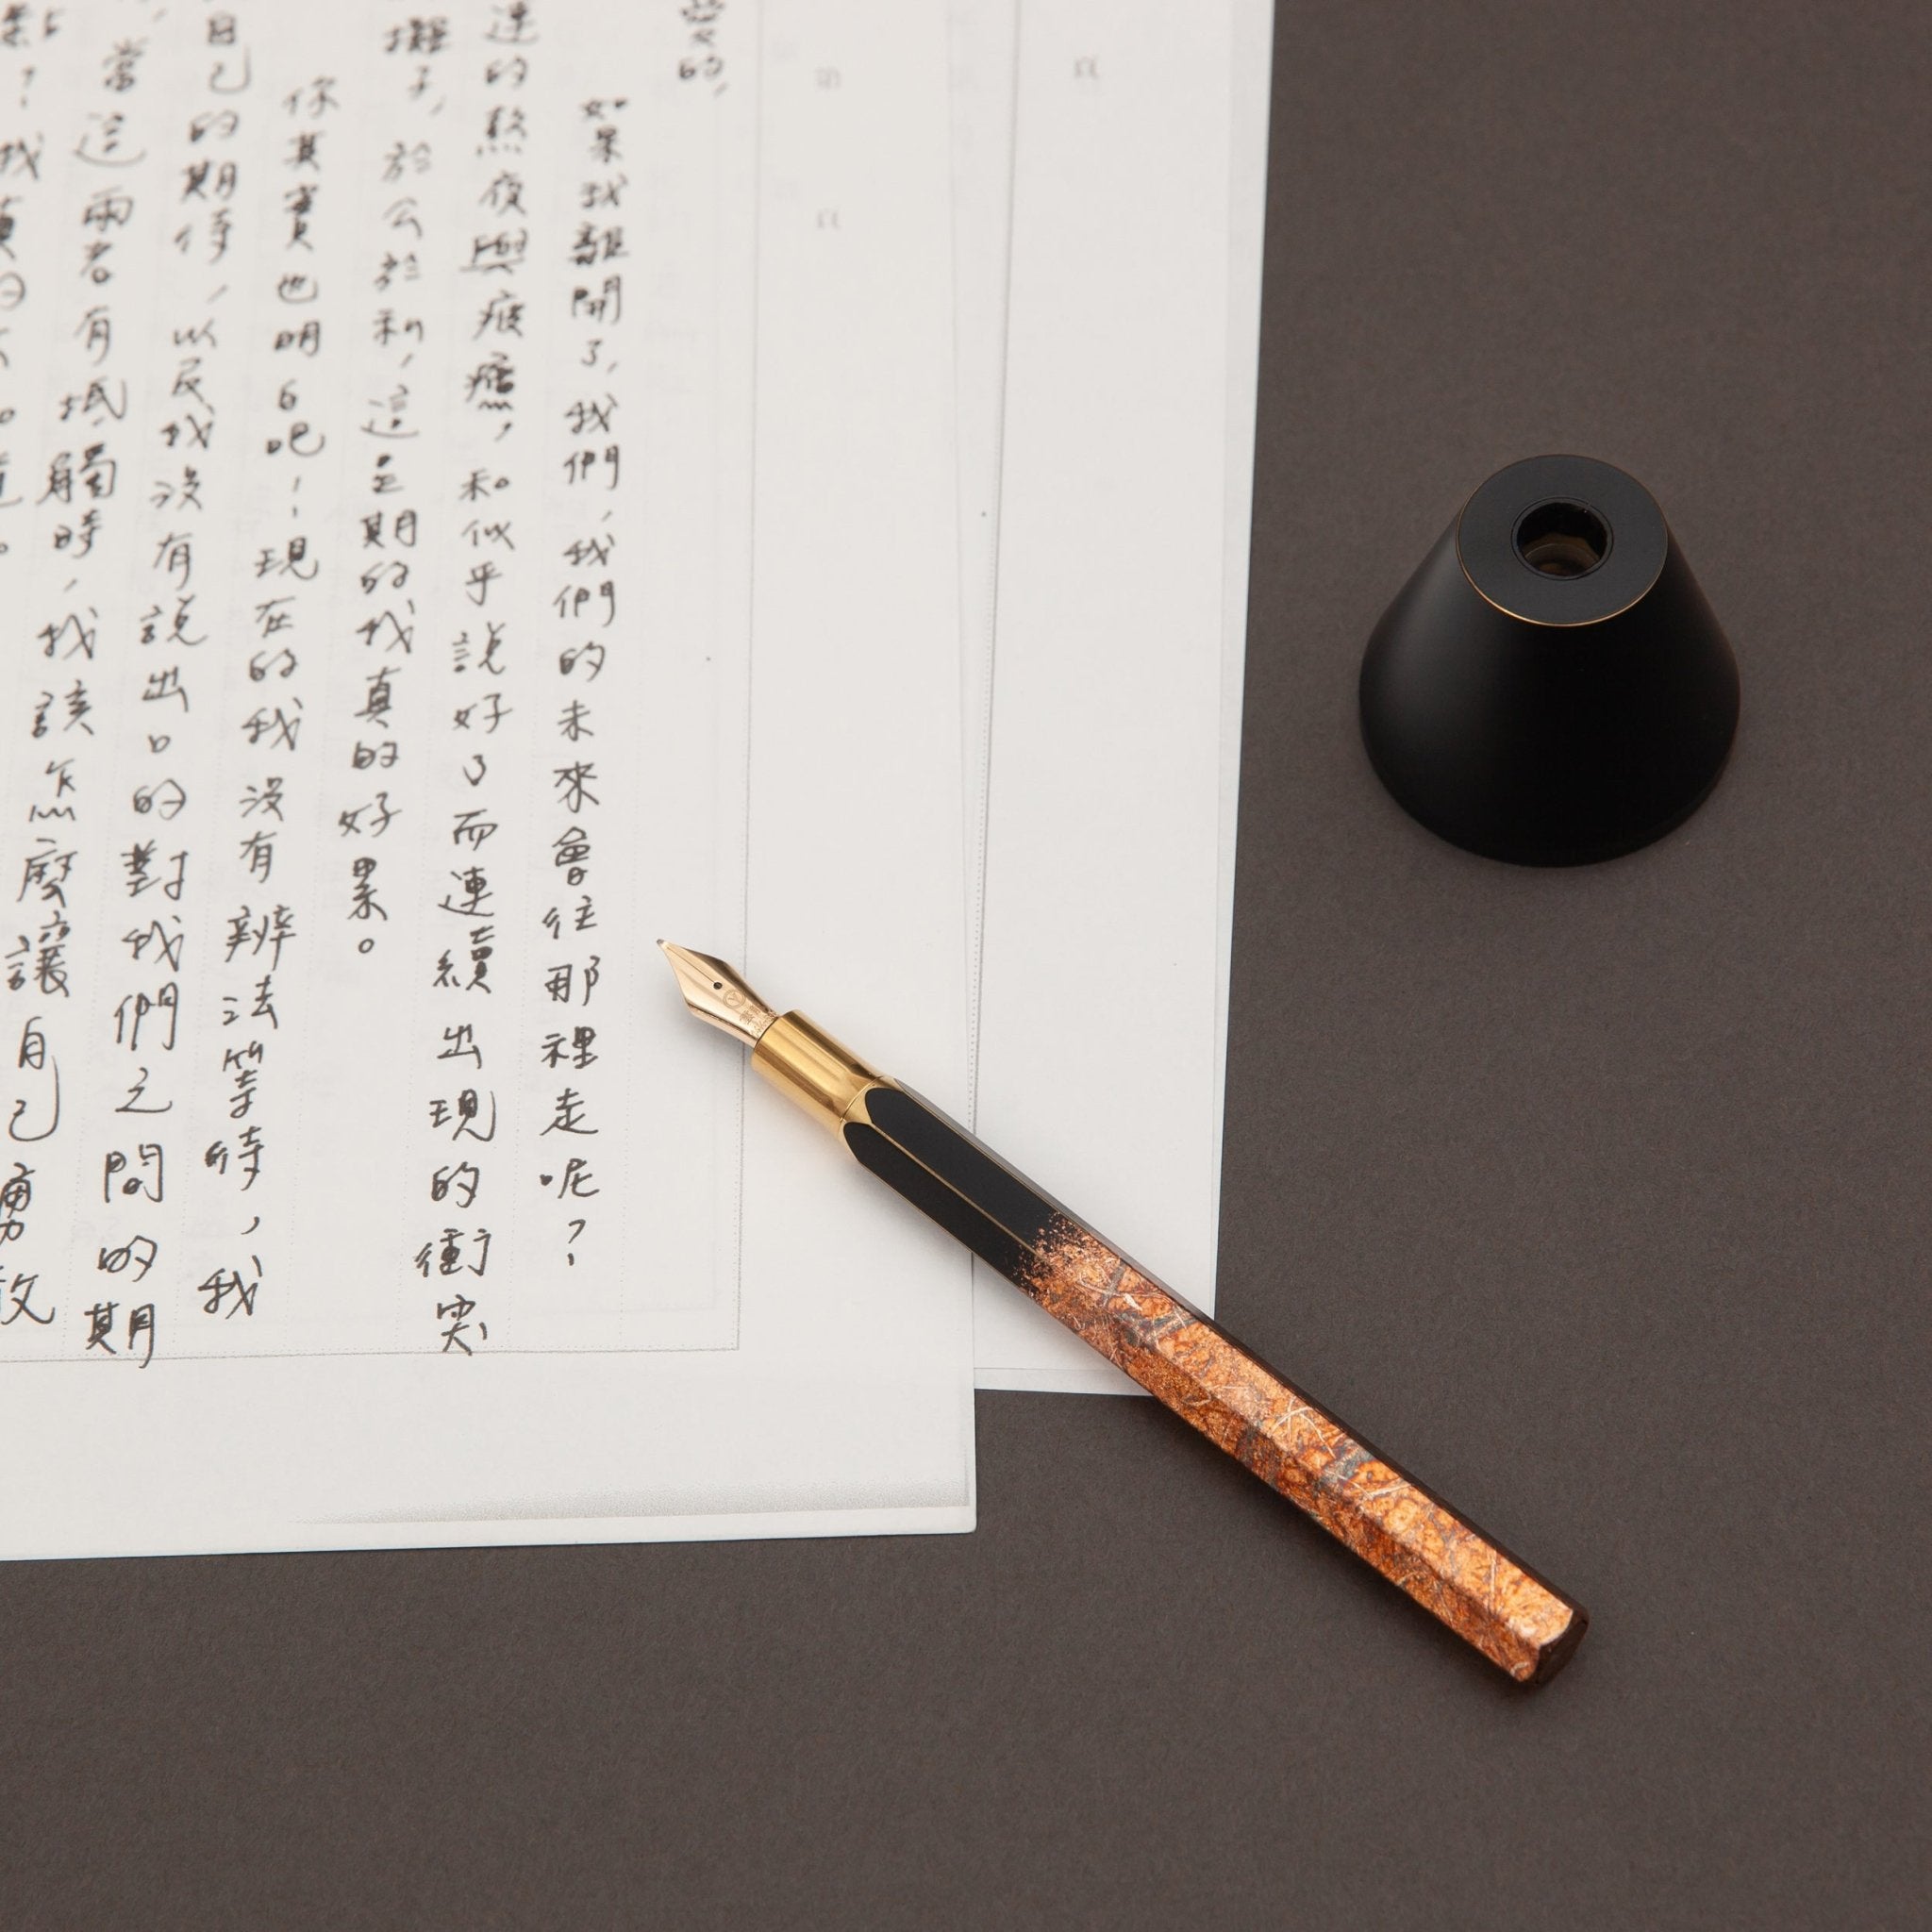 愛的，
如果我離開了，我們，我們的未來會往那裡走呢？
連的熬夜與疲憊，和似乎說好了而連續出現的衝突
攤子，於公於私，這王期的我真的好累。
你其實也明白吧！現在的我沒有辨法等待，我
自己的期待，以及我沒有說出口的對我們之間的期
當這兩者有抵觸時，我該怎麼讓自己勇敢
第
頁
頁